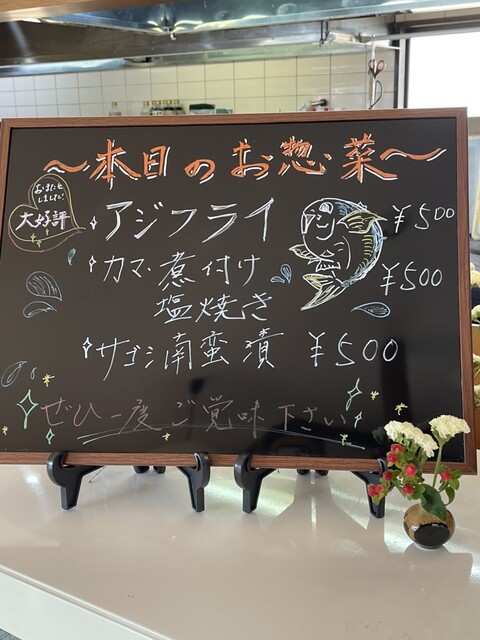 ～本日のお惣菜～
おまたせ
しました!
大好評
アジフライ ￥500
カマ・煮付け ￥500
塩焼き
サゴシ南蛮漬 ￥500
ぜひ一度ご覚味下さい